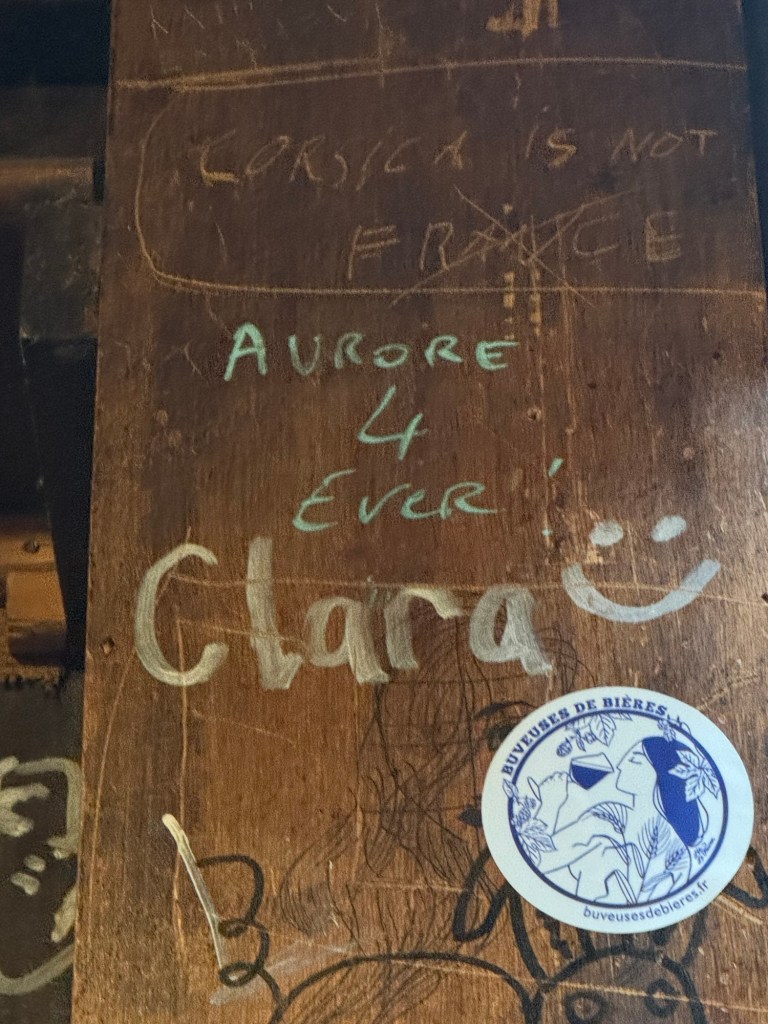 CORSICA IS NOT
FRANCE
AURORE
4
Ever !
Clara
BUVEUSES DE BIÈRES
buveusesdebieres.fr